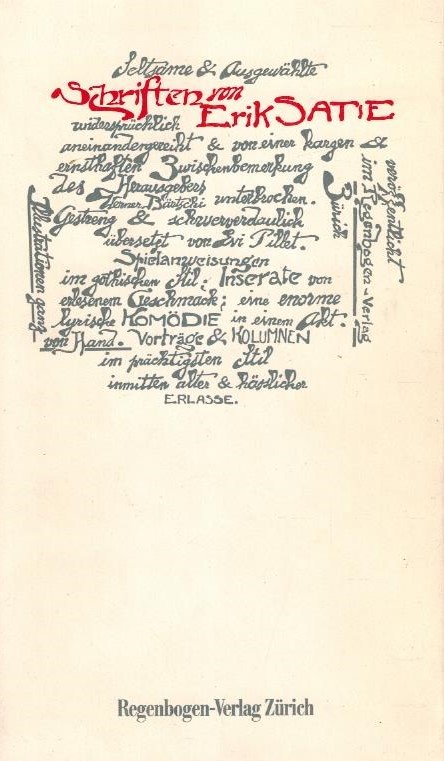 Seltsame & Ausgewählte
Schriften von
Erik SATIE
widersprüchlich
aneinandergereiht & von einer kargen &
ernsthaften Zwischenbemerkung
des Herausgebers
Werner Bärtschi unterbrochen.
Gestreng & schwerverdaulich
übersetzt von Evi Pillet.
Spielanweisungen
im gothischen Stil. Inserate von
erlesenem Geschmack; eine enorme
lyrische KOMÖDIE in einem Akt.
Vorträge & KOLUMNEN
im prächtigsten Stil
inmitten alter & hässlicher
ERLASSE.
Illustrationen ganz
von Hand.
veröffentlicht
im Regenbogen-Verlag
Zürich
Regenbogen-Verlag Zürich